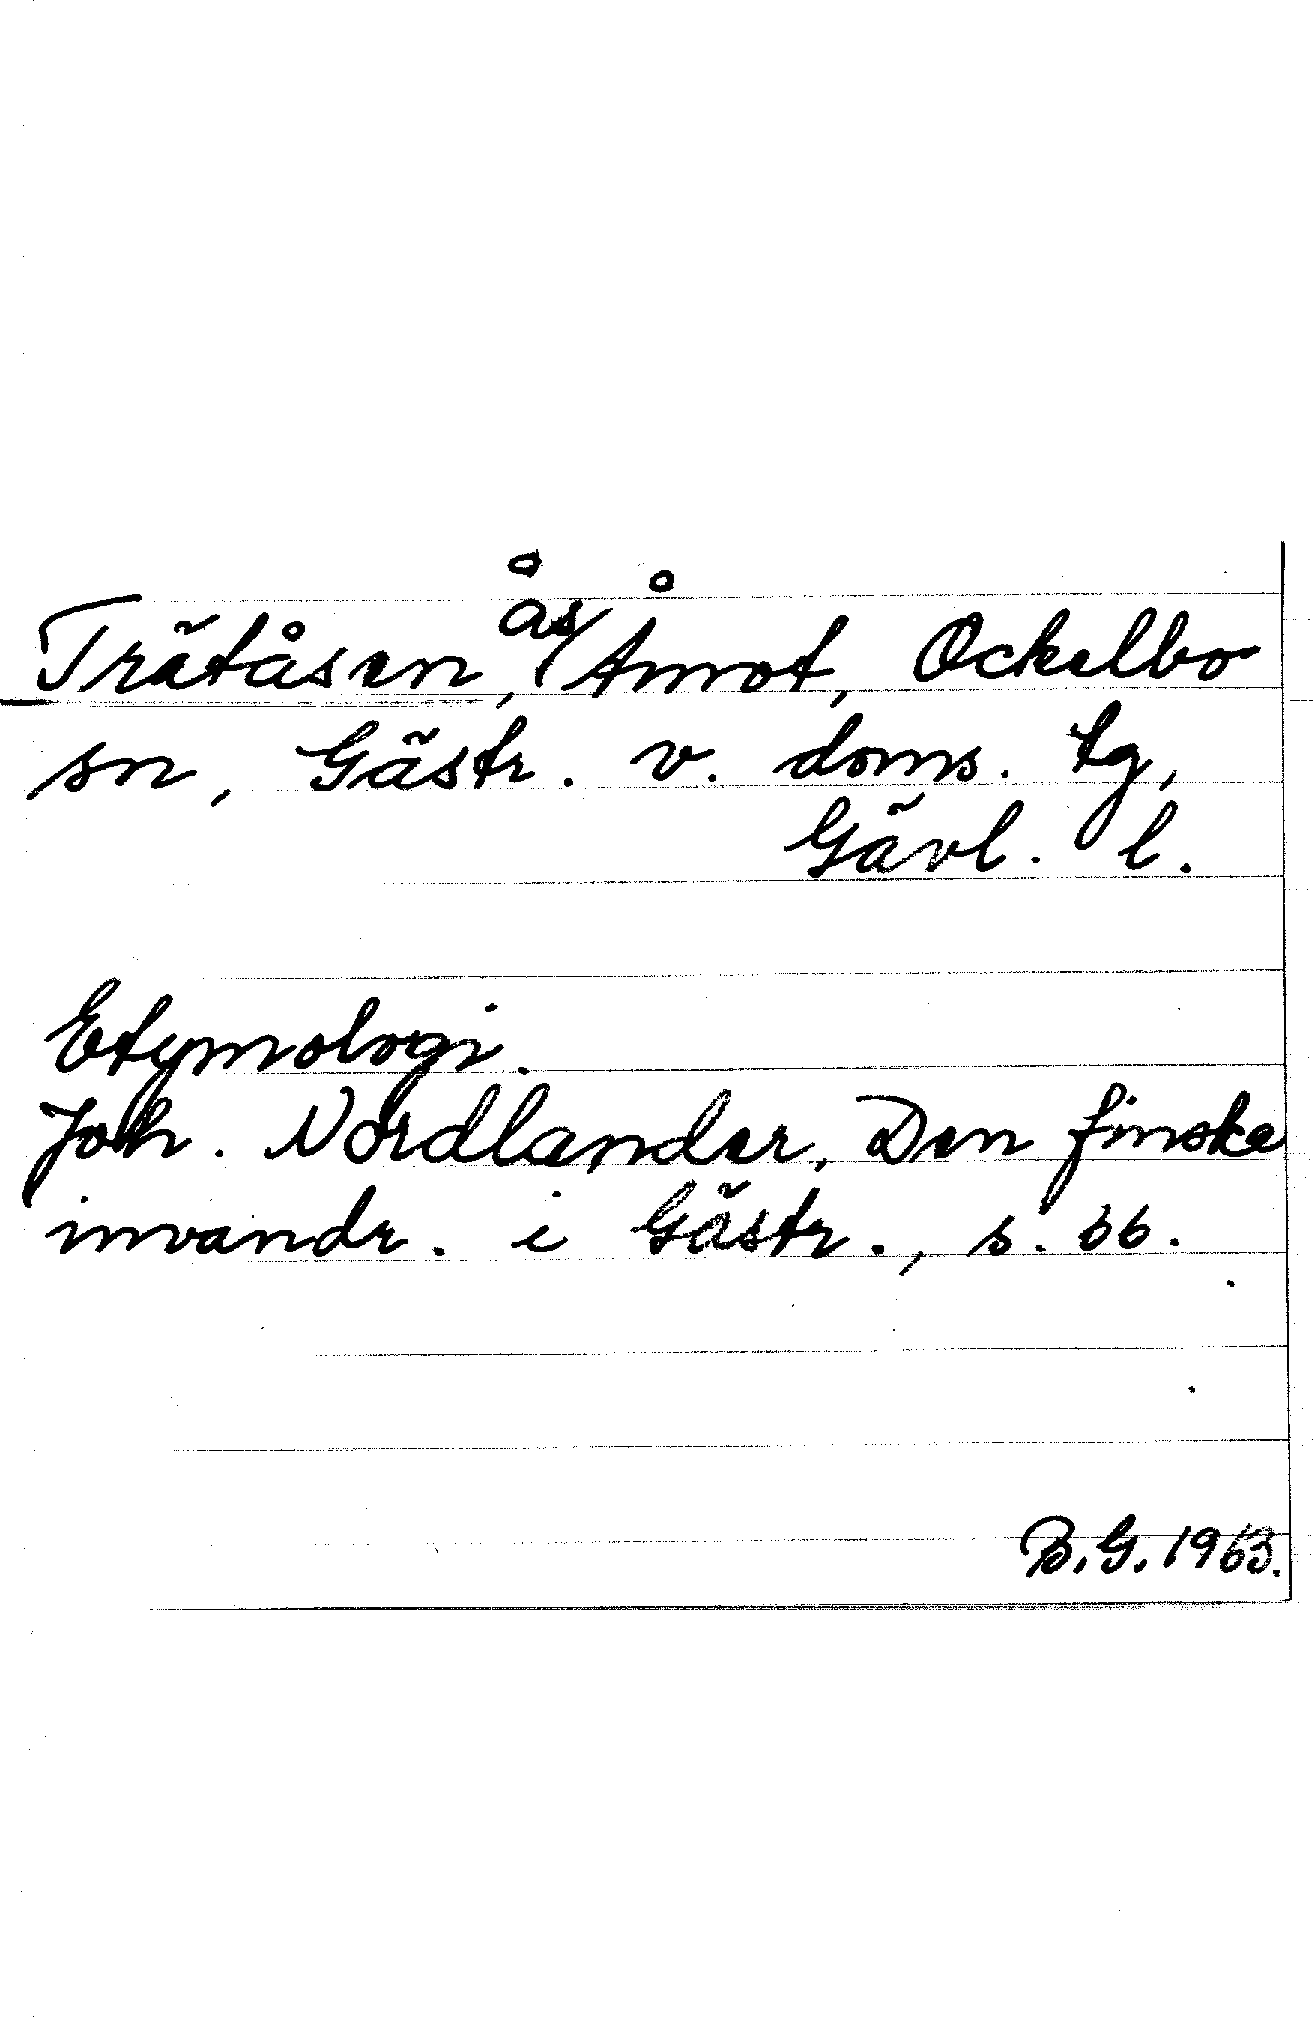 Trätåsen, ås, Åmot, Ockelbo
sn, Gästr. v. doms. tg,
Gävl. l.
Etymologi.
Joh. Nordlander, Den finska
invandr. i Gästr., s. 66.
B.G. 1963.